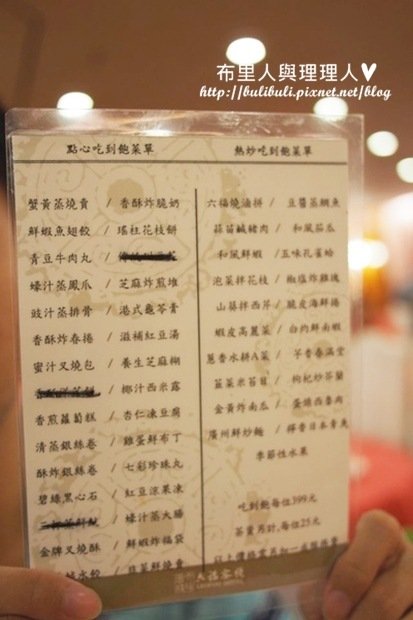 布里人與理理人♥
http://bulibuli.pixnet.net/blog
點心吃到飽菜單
熱炒吃到飽菜單
蟹黃蒸燒賣 / 香酥炸脆奶
鮮蝦魚翅餃 / 瑤柱花枝餅
青豆牛肉丸 /
蠔汁蒸鳳爪 / 芝麻炸煎堆
豉汁蒸排骨 / 港式龜苓膏
香酥炸春捲 / 滋補紅豆湯
蜜汁叉燒包 / 養生芝麻糊
/ 椰汁西米露
香煎蘿蔔糕 / 杏仁凍豆腐
清蒸銀絲卷 / 雞蛋鮮布丁
酥炸銀絲卷 / 七彩珍珠丸
碧綠黑心石 / 紅豆涼果凍
/ 蠔汁蒸大腸
金牌叉燒酥 / 鮮蝦炸福袋
水餃 / 韭菜鮮燒賣
六福燒滷拼 / 豆醬蒸鯛魚
蒜苗鹹豬肉 / 和風茄瓜
和風鮮蝦 / 五味孔雀蛤
泡菜拌花枝 / 椒塩炸雞塊
山葵拌西芹 / 脆皮海鮮捲
蝦皮高麗菜 / 白灼鮮南蝦
蔥香水耕A菜 / 芋香卷滿堂
韮菜米苔目 / 枸杞炒芥蘭
金黃炸南瓜 / 蛋鬆西魯肉
廣州鮮炒麵 / 檸香日本青魚
季節性水果
吃到飽每位399元
茶資另計,每位25元
以上價格需另加一成服務費
大福客棧